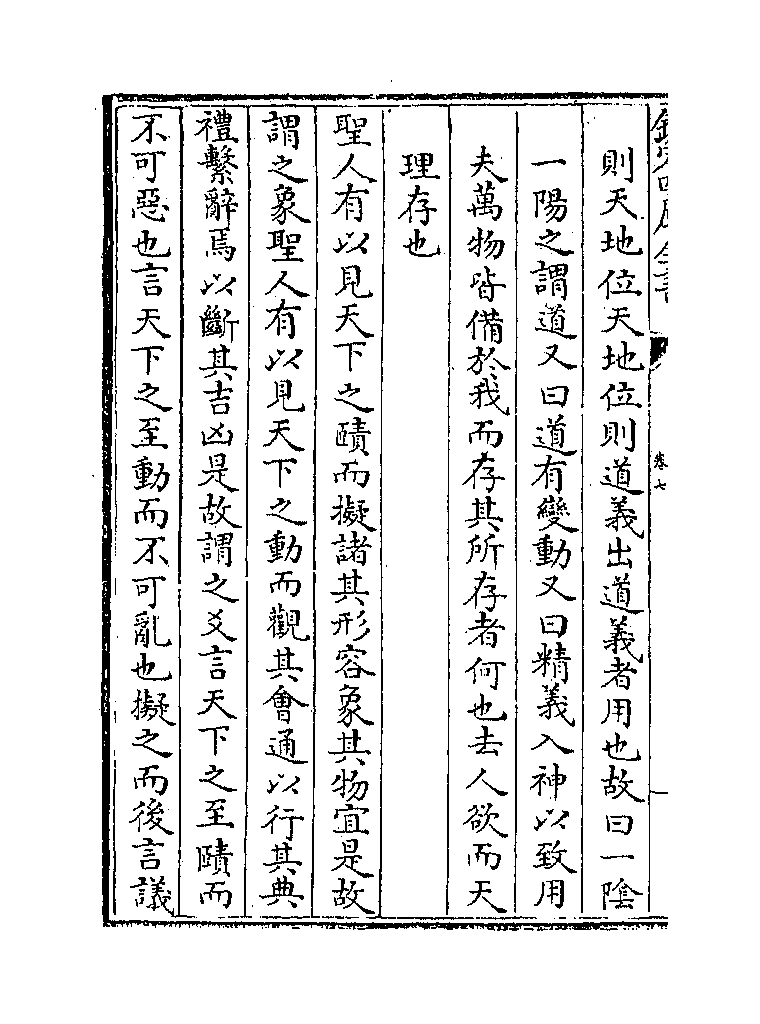 欽定四庫全書
卷七
則天地位天地位則道義出道義者用也故曰一陰
一陽之謂道又曰道有變動又曰精義入神以致用
夫萬物皆備於我而存其所存者何也去人欲而天
理存也
聖人有以見天下之賾而擬諸其形容象其物宜是故
謂之象聖人有以見天下之動而觀其會通以行其典
禮繫辭焉以斷其吉凶是故謂之爻言天下之至賾而
不可惡也言天下之至動而不可亂也擬之而後言議